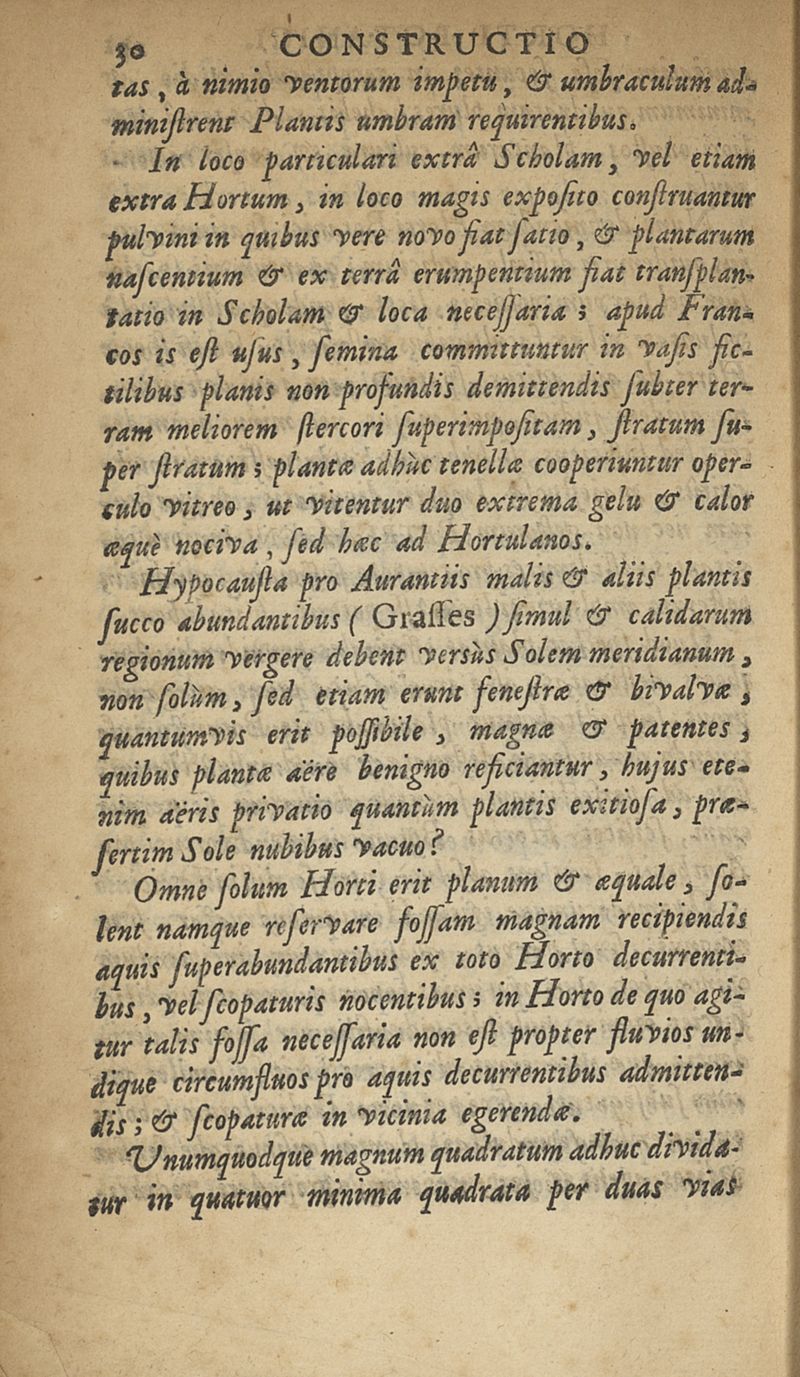 30 CONSTRUCTIO
tas, à nimio ventorum impetu, & umbraculum ad-
miniſtrent Plantis umbram requirentibus.
In loco particulari extrâ Scholam, vel etiam
extra Hortum, in loco magis expoſito conſtruantur
pulvini in quibus vere novo fiat ſatio, & plantarum
naſcentium & ex terrâ erumpentium fiat tranſplan-
tatio in Scholam & loca neceſſaria; apud Fran-
cos is eſt uſus, ſemina committuntur in vaſis fic-
tilibus planis non profundis demittendis ſubter ter-
ram meliorem ſtercori ſuperimpoſitam, ſtratum ſu-
per ſtratum; plantæ adhùc tenellæ cooperiuntur oper-
culo vitreo, ut vitentur duo extrema gelu & calor
æquè nociva, ſed hæc ad Hortulanos.
Hypocauſta pro Aurantiis malis & aliis plantis
ſucco abundantibus ( Graſſes ) ſimul & calidarum
regionum vergere debent versùs Solem meridianum,
non ſolùm, ſed etiam erunt feneſtræ & bivalvæ,
quantumvis erit poſſibile, magnæ & patentes,
quibus plantæ aëre benigno reficiantur, hujus ete-
nim aëris privatio quantùm plantis exitioſa, præ-
ſertim Sole nubibus vacuo?
Omne ſolum Horti erit planum & æquale, ſo-
lent namque reſervare foſſam magnam recipiendis
aquis ſuperabundantibus ex toto Horto decurrenti-
bus, vel ſcopaturis nocentibus; in Horto de quo agi-
tur talis foſſa neceſſaria non eſt propter fluvios un-
dique circumfluos pro aquis decurrentibus admitten-
dis; & ſcopaturæ in vicinia egerendæ.
Unumquodque magnum quadratum adhuc divida-
tur in quatuor minima quadrata per duas vias